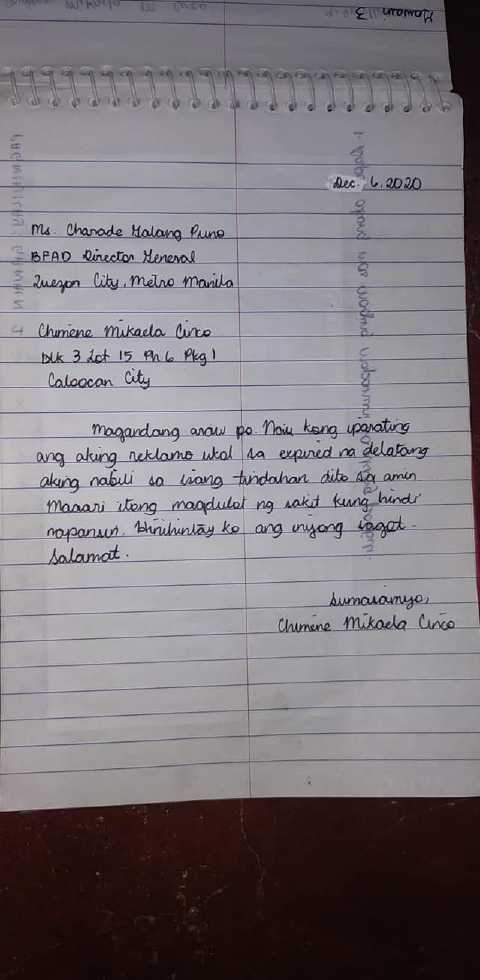 Gawain 3
Dec. 6, 2020
Ms. Charade Galang Puno
BFAD Director General
Quezon City, Metro Manila
Chimene Mikaela Cinco
Blk 3 Lot 15 Ph 6 Pkg 1
Caloocan City
Magandang araw po. Nais kong iparating
ang aking reklamo ukol sa expired na delatang
aking nabili sa isang tindahan dito sa amin
Maaari itong magdulot ng sakit kung hindi
napansin. Hinihintay ko ang inyong sagot.
Salamat.
Sumasainyo,
Chimene Mikaela Cinco